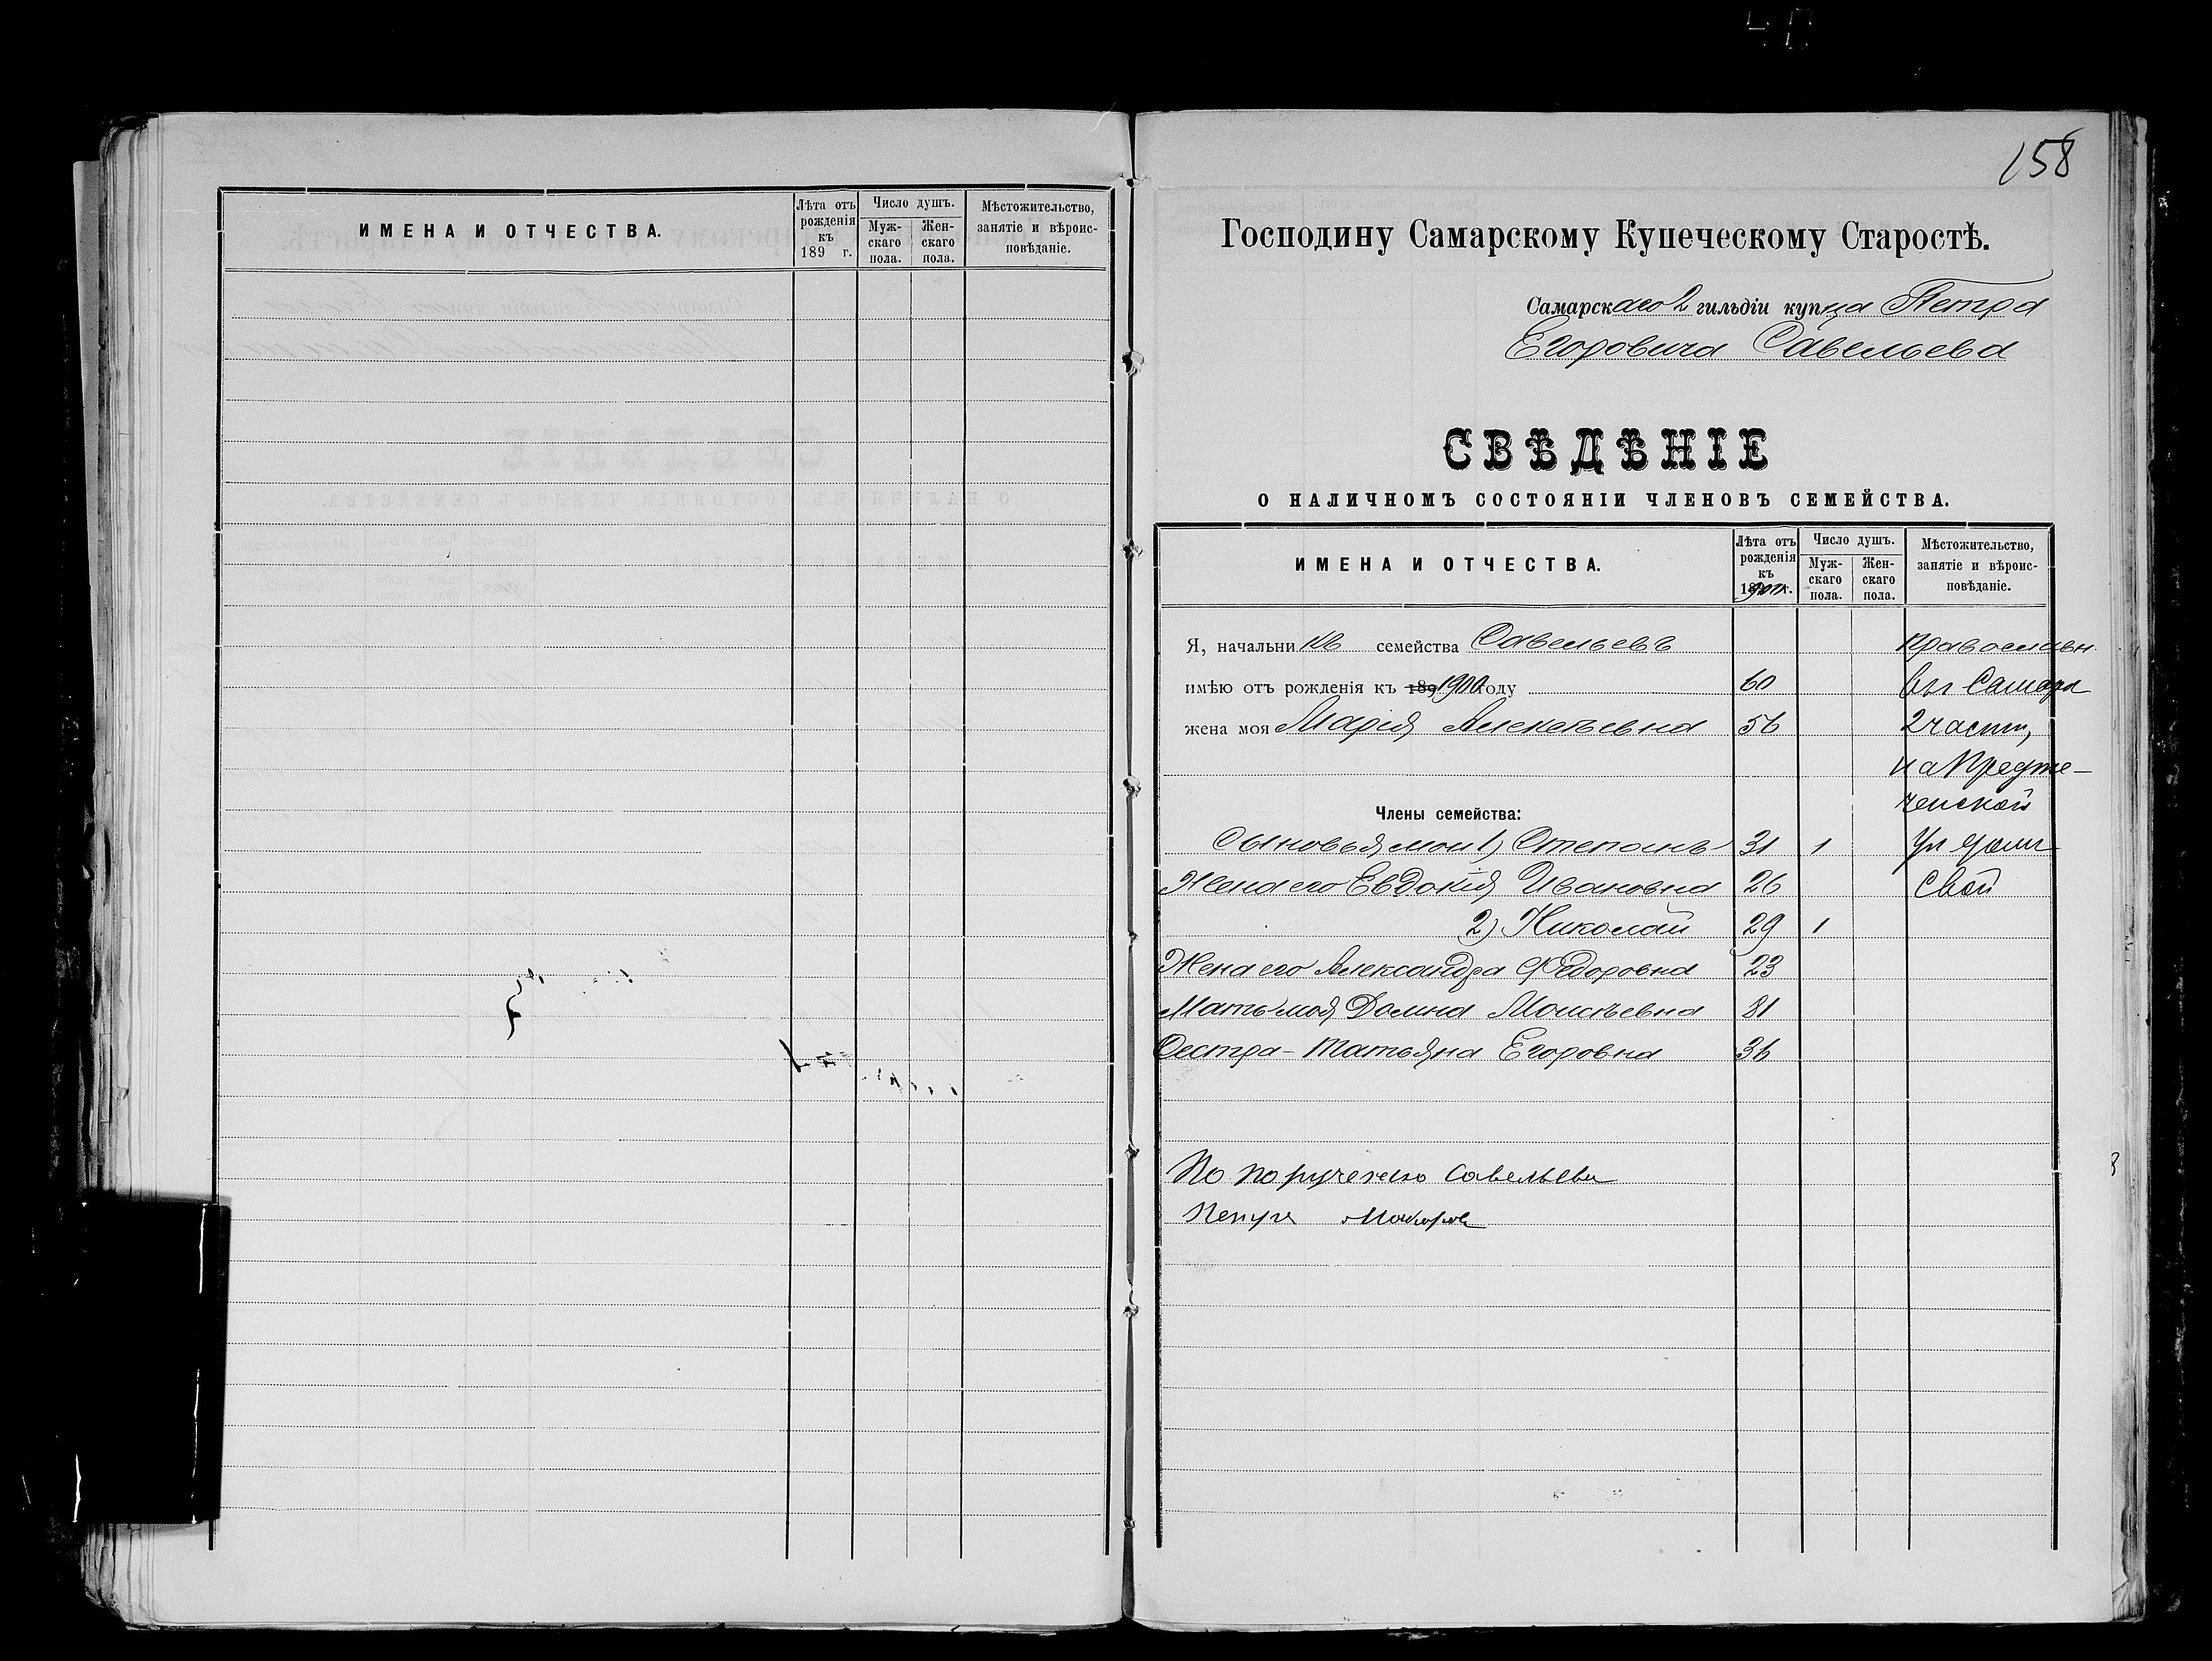 ИМЕНА И ОТЧЕСТВА.
Лѣта отъ рожденія къ 189 г.
Число душъ.
Мужскаго пола.
Женскаго пола.
Мѣстожительство, занятіе и вѣроисповѣданіе.
158
Господину Самарскому Купеческому Старостѣ.
Самарскаго 2 гильдіи купца Петра
Егоровича Савельева
СВѢДѢНІЕ
О НАЛИЧНОМЪ СОСТОЯНІИ ЧЛЕНОВЪ СЕМЕЙСТВА.
ИМЕНА И ОТЧЕСТВА.
Лѣта отъ рожденія къ 1900 г.
Число душъ.
Мужскаго пола.
Женскаго пола.
Мѣстожительство, занятіе и вѣроисповѣданіе.
Я, начальникъ семейства Савельевъ православн.
имѣю отъ рожденія къ 189 1900 году 60 въ г Самара
жена моя Марія Алексѣевна 56 2 части,
на Предте-
ченской
Члены семейства:
Сыновья мои 1) Степанъ 31 1 ул домъ
Жена его Евдокія Ивановна 26 свой
2) Николай 29 1
Жена его Александра Федоровна 23
Мать моя Домна Моисѣевна 81
Сестра - Татьяна Егоровна 36
По порученію Савельева
Петръ Макаровъ